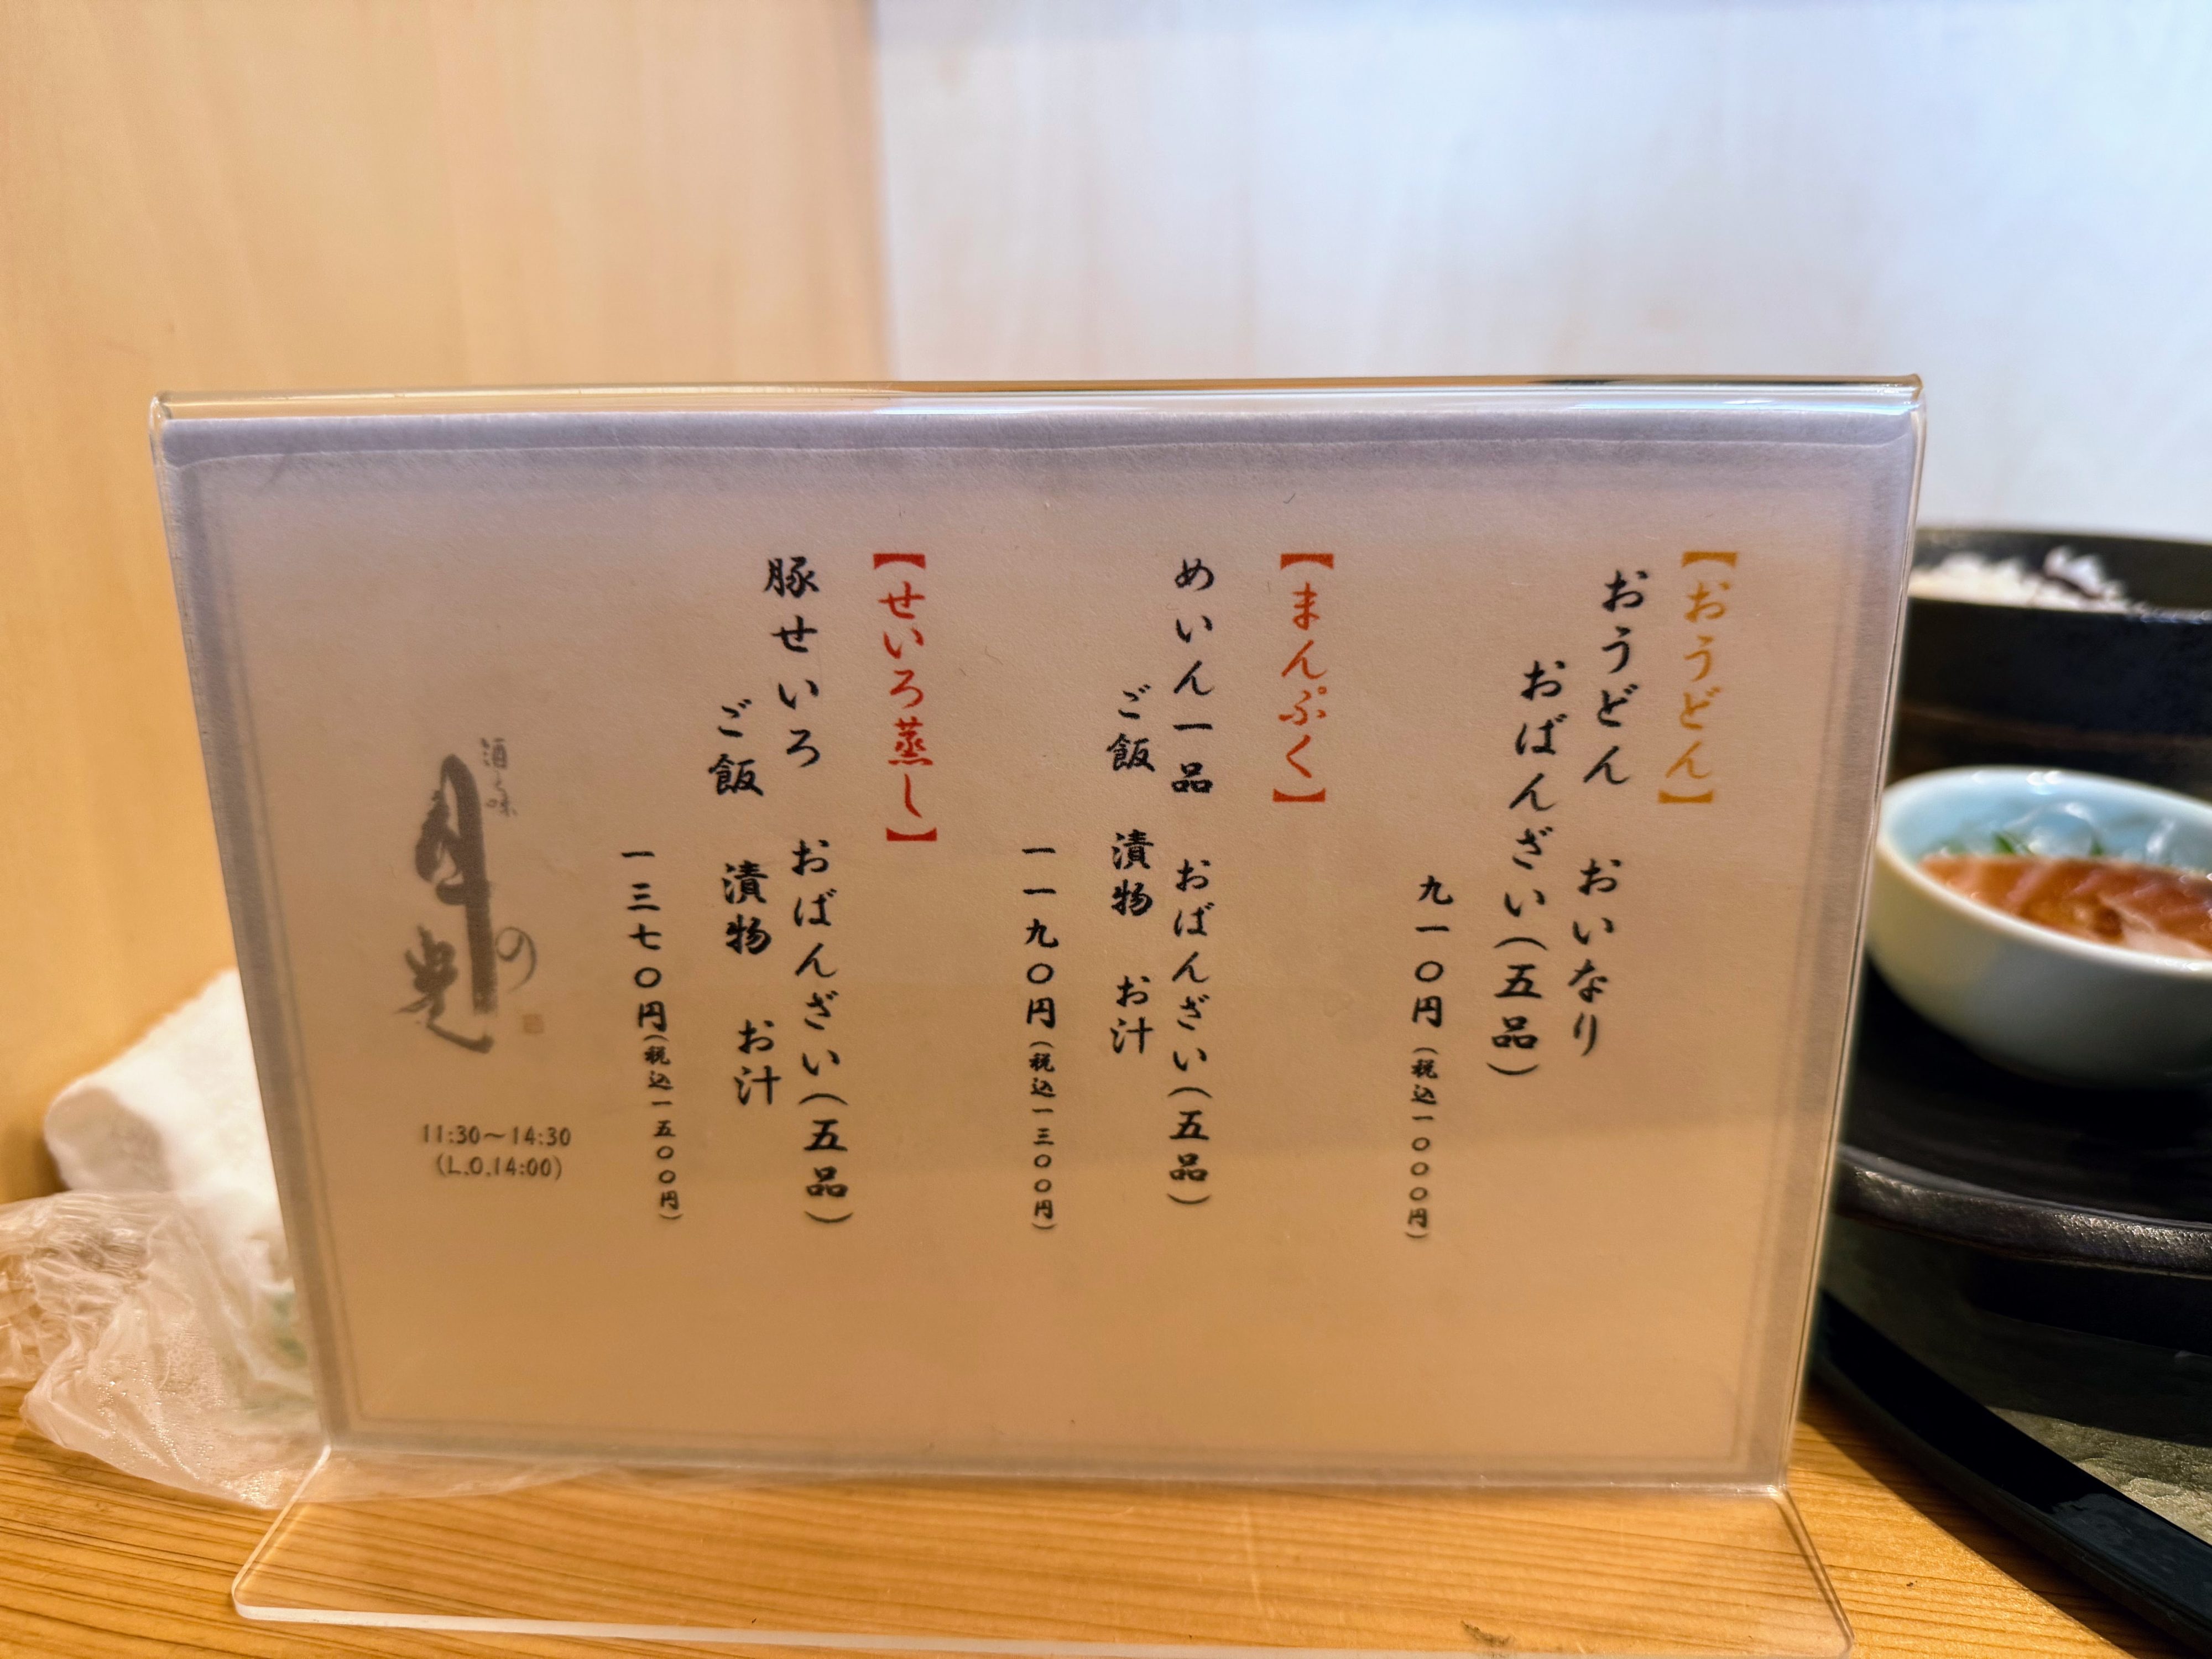 【おうどん】
おうどん　おいなり
おばんざい（五品）
九一〇円（税込一〇〇〇円）
【まんぷく】
めいん一品　おばんざい（五品）
ご飯　漬物　お汁
一一九〇円（税込一三〇〇円）
【せいろ蒸し】
豚せいろ　おばんざい（五品）
ご飯　漬物　お汁
一三七〇円（税込一五〇〇円）
酒と味
月の光
11:30～14:30
(L.O.14:00)